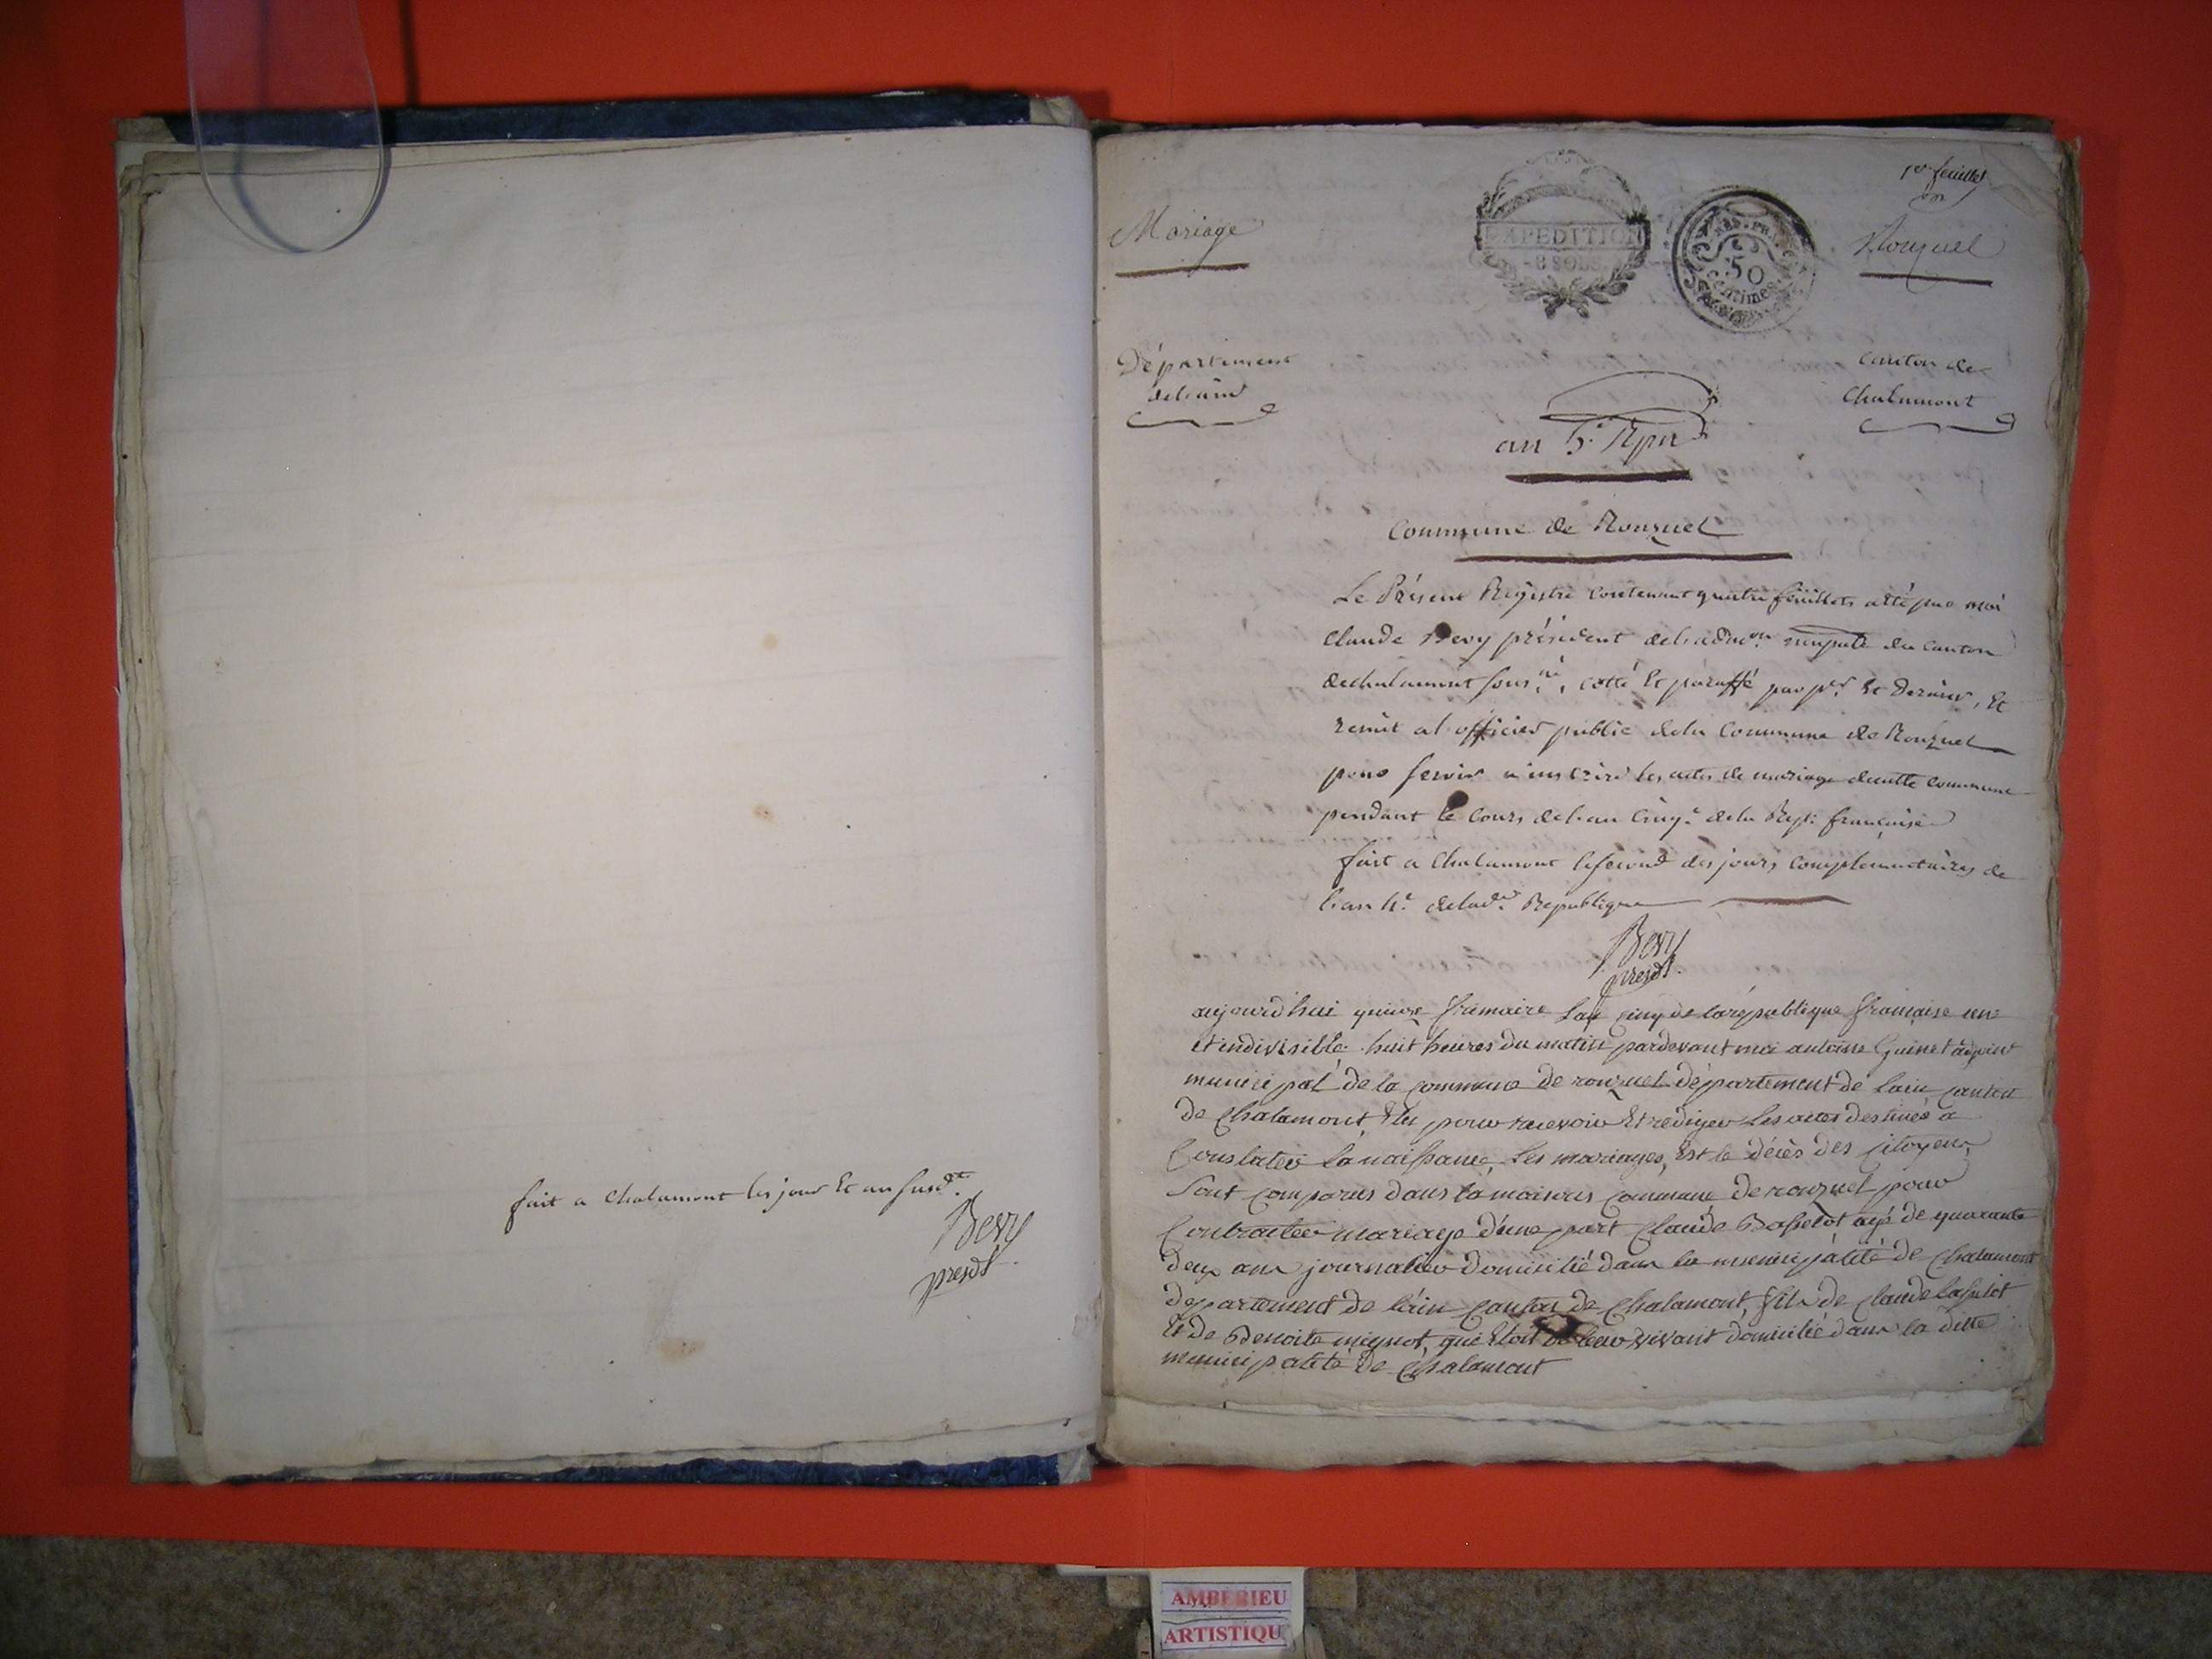 fait a Chalamont les jour Et an susd.t
Bevy
presdt.
1er feuillet
Mariage
EXPEDITION
8 SOLS
50
Centimes
Ronzuel
Département
de l'ain
Canton de
Chalamont
an 5.e Rpn
Commune de Ronzuel
Le Présent Registre Contenant quatre feuillets a été par moi
Claude Bevy président de l'adm.on municipale du Canton
de chalamont sous.né, cotté Et paraffé par p.er Et Dernier, Et
remit a l'officier public de la Commune de Ronzuel
pour servir a inscrire les actes de mariage de cette Commune
pendant le Cours de l'an Cinq.e de la Rep. française
fait a Chalamont le second des jours Complémentaires de
l'an 4.e de lad.e Republique
Bevy
presdt.
aujourd'hui quinze frimaire L'an cinq de la république française une
et indivisible huit heures du matin pardevant moi antoine Guinet adjoint
municipal de la commune de ronzuel département de l'ain canton
de Chalamont Elu pour recevoir Et rediger Les actes destinés a
Constater la naissance, Les mariages, Est le décès des Citoyens,
Sont comparus dans la maison commune de ronzuel pour
Contracter mariage d'une part Claude agé de quarante
deux ans journalier Domicilié dans la municipalité de Chalamont
departement de l'ain Canton de Chalamont, fils de Claude
Et de Benoite mignot, qui Etoit de leur vivant domicilié dans la ditte
municipalité de Chalamont
AMBERIEU
ARTISTIQU